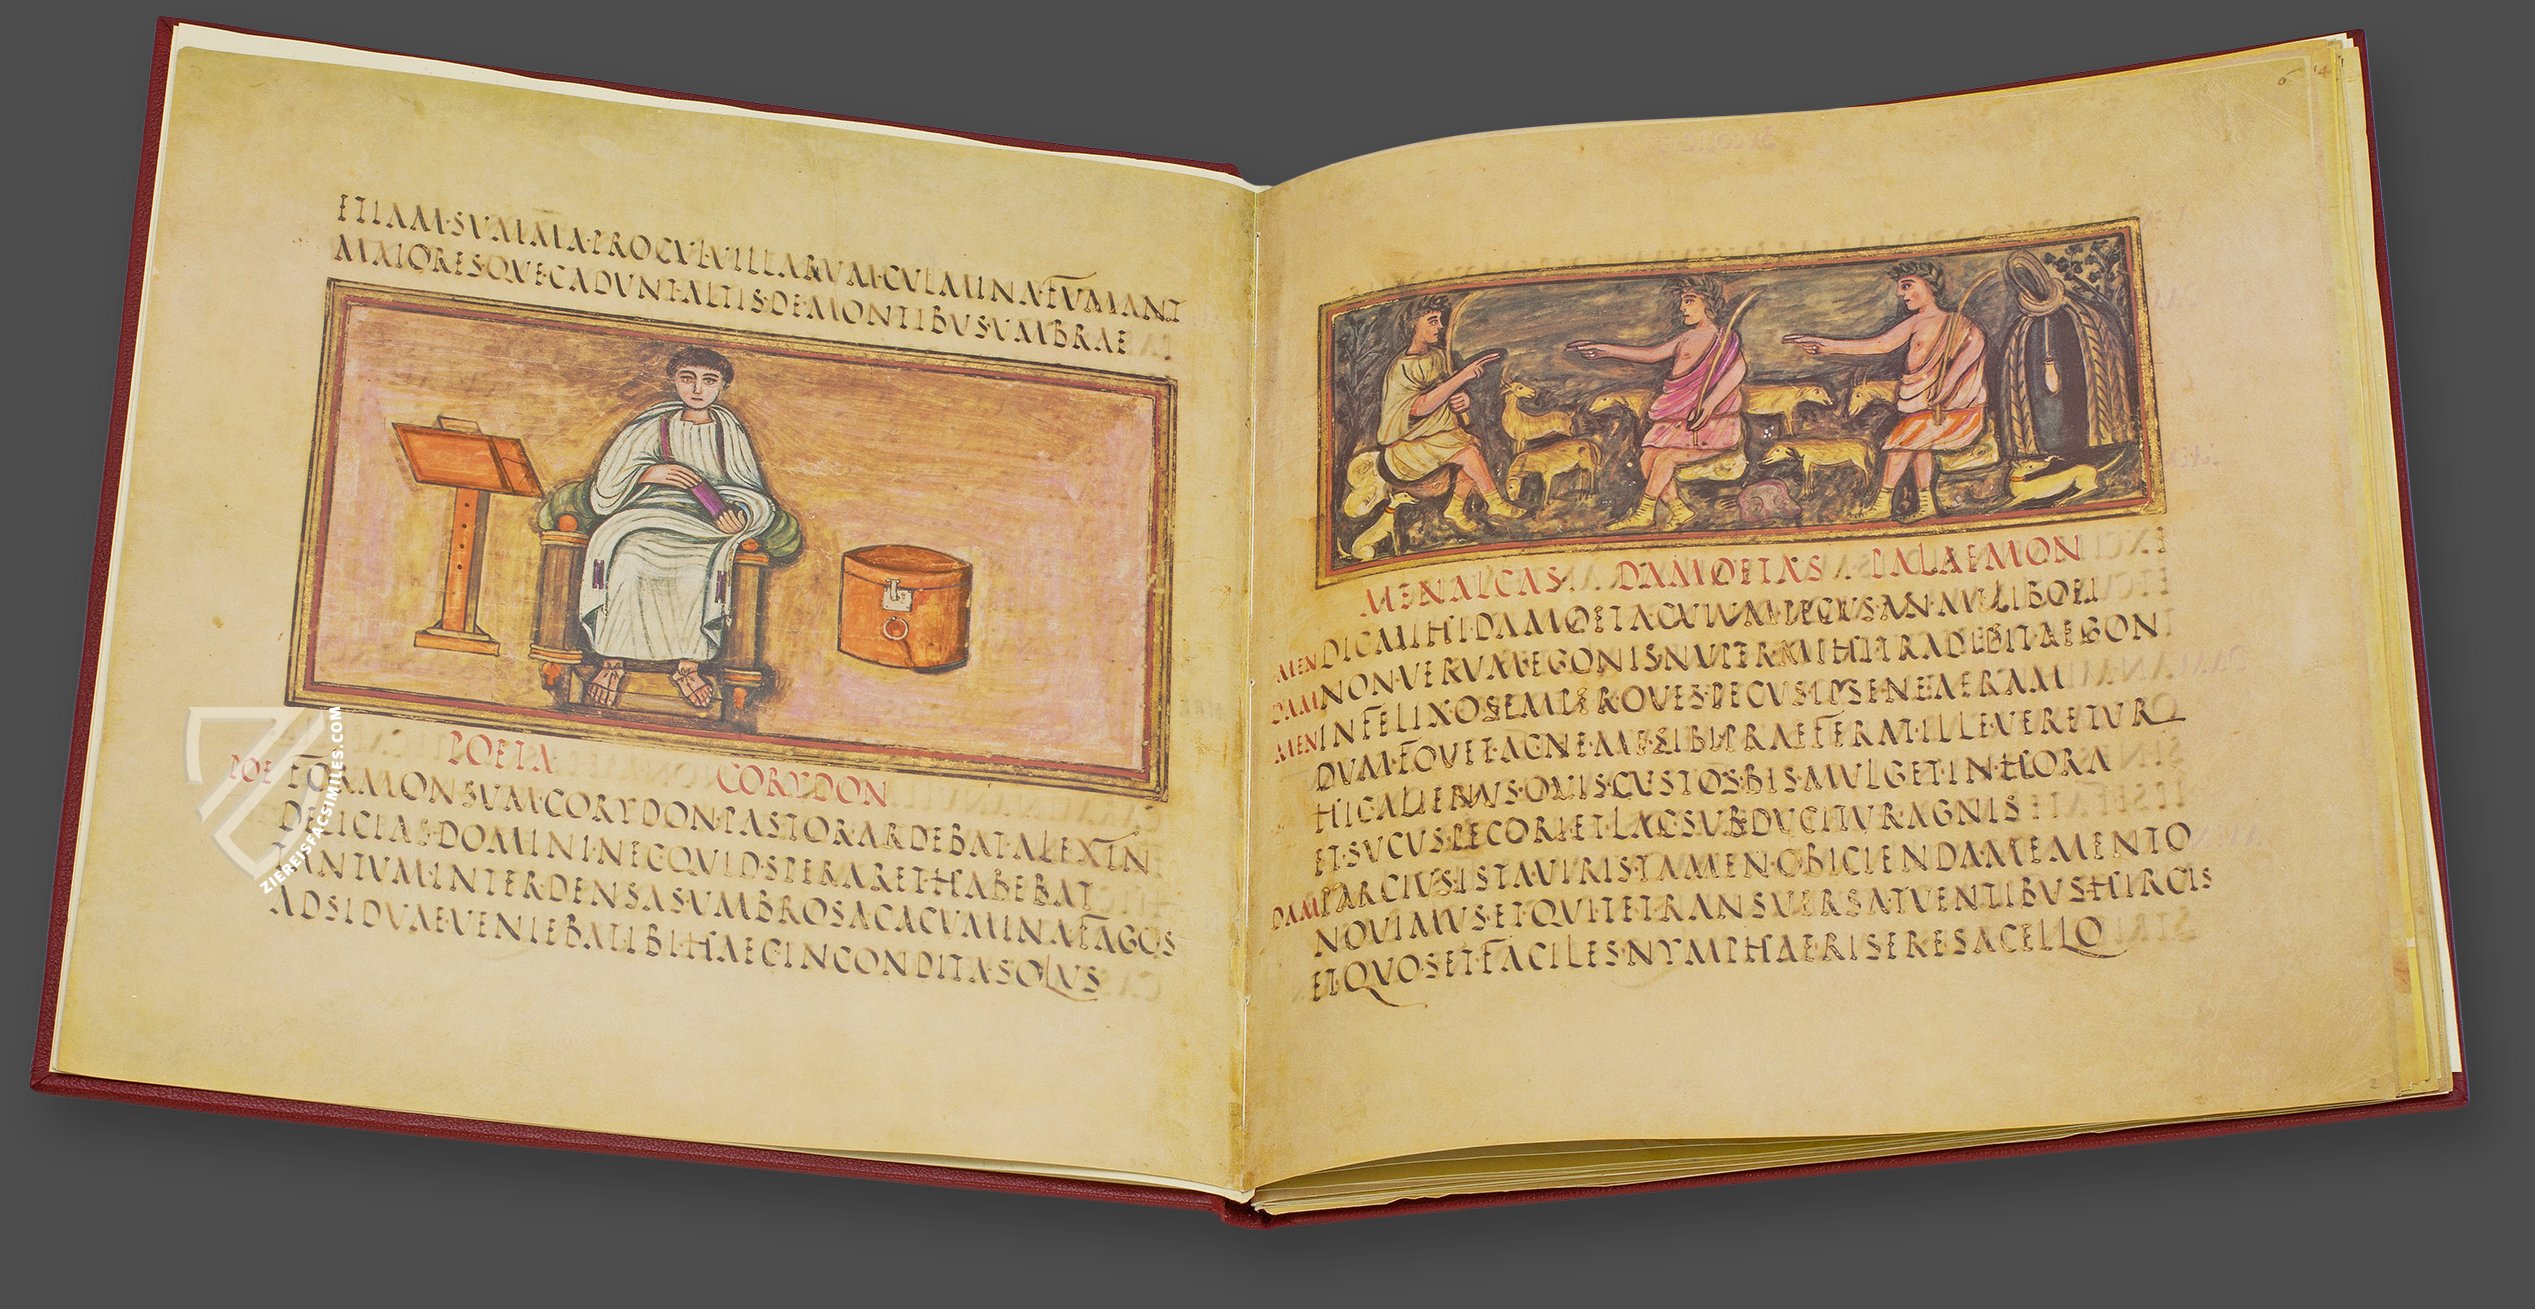 ETIAM·SVMMA·PROCVL·VILLARVM·CVLMINA·FVMANT
MAIORESQVE·CADVNT·ALTIS·DE·MONTIBVS·VMBRAE
POETA CORYDON
POE FORMONSVM·CORYDON·PASTOR·ARDEBAT·ALEXIN
DELICIAS·DOMINI·NEC·QVID·SPERARET·HABEBAT
TANTVM·INTER·DENSAS·VMBROSA·CACVMINA·FAGOS
ADSIDVAE·VENIEBAT·IBI·HAEC·INCONDITA·SOLVS
ZIEREISFACSIMILES.COM
6 14
MENALCAS· DAMOETAS · PALAEMON
MEN DIC·MIHI·DAMOETA·CVIVM·PECVS·AN·MELIBOEI
DAM NON·VERVM·EGONIS·NVPER·MIHI·TRADIDIT·AEGON
MEN INFELIX·O·SEMPER·OVES·PECVS·IPSE·NEAERAM
DVM·FOVET·AC·NE·ME·SIBI·PRAEFERAT·ILLE·VERETVR
HIC·ALIENVS·OVIS·CVSTOS·BIS·MVLGET·IN·HORA
ET·SVCVS·PECORI·ET·LAC·SVBDVCITVR·AGNIS
DAM PARCIVS·ISTA·VIRIS·TAMEN·OBICIENDA·MEMENTO
NOVIMVS·ET·QVI·TE·TRANSVERSA·TVENTIBVS·HIRCIS
ET·QVO·SET·FACILES·NYMPHAE·RISERE·SACELLO
2